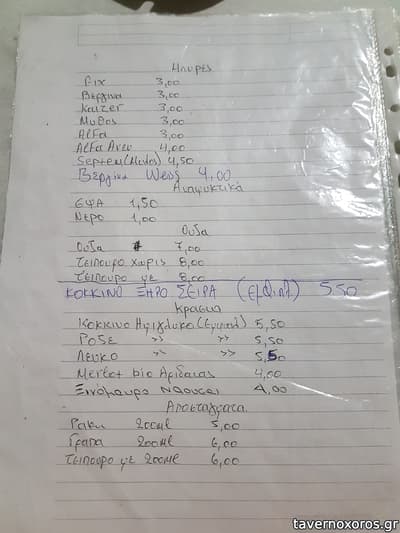 Μπυρες
Fix 3,00
Βεργινα 3,00
Kaizer 3,00
Μυθος 3,00
Alfa 3,00
Alfa Ανευ 4,00
Septem (Μονος) 4,50
Βεργινα Weiss 4,00
Αναψυκτικά
ΕΨΑ 1,50
Νερο 1,00
Ουζα
Ουζα 7,00
Τσιπουρο χωρις 8,00
Τσιπουρο με 8,00
ΚΟΚΚΙΝΟ ΞΗΡΟ ΣΕΙΡΑ (εμφιαλ) 5,50
Κρασια
Κοκκινο Ημιγλυκο (Εμφιαλ) 5,50
Ροζε >> >> 5,50
Λευκο >> >> 5,50
Merlot bio Αριδαιας 4,00
Ξινόμαυρο Ναουσας 4,00
Αποσταγματα
Ρακι 200ml 5,00
Γραπα 200ml 6,00
Τσιπουρο με 200ml 6,00
www.tavernoxoros.gr